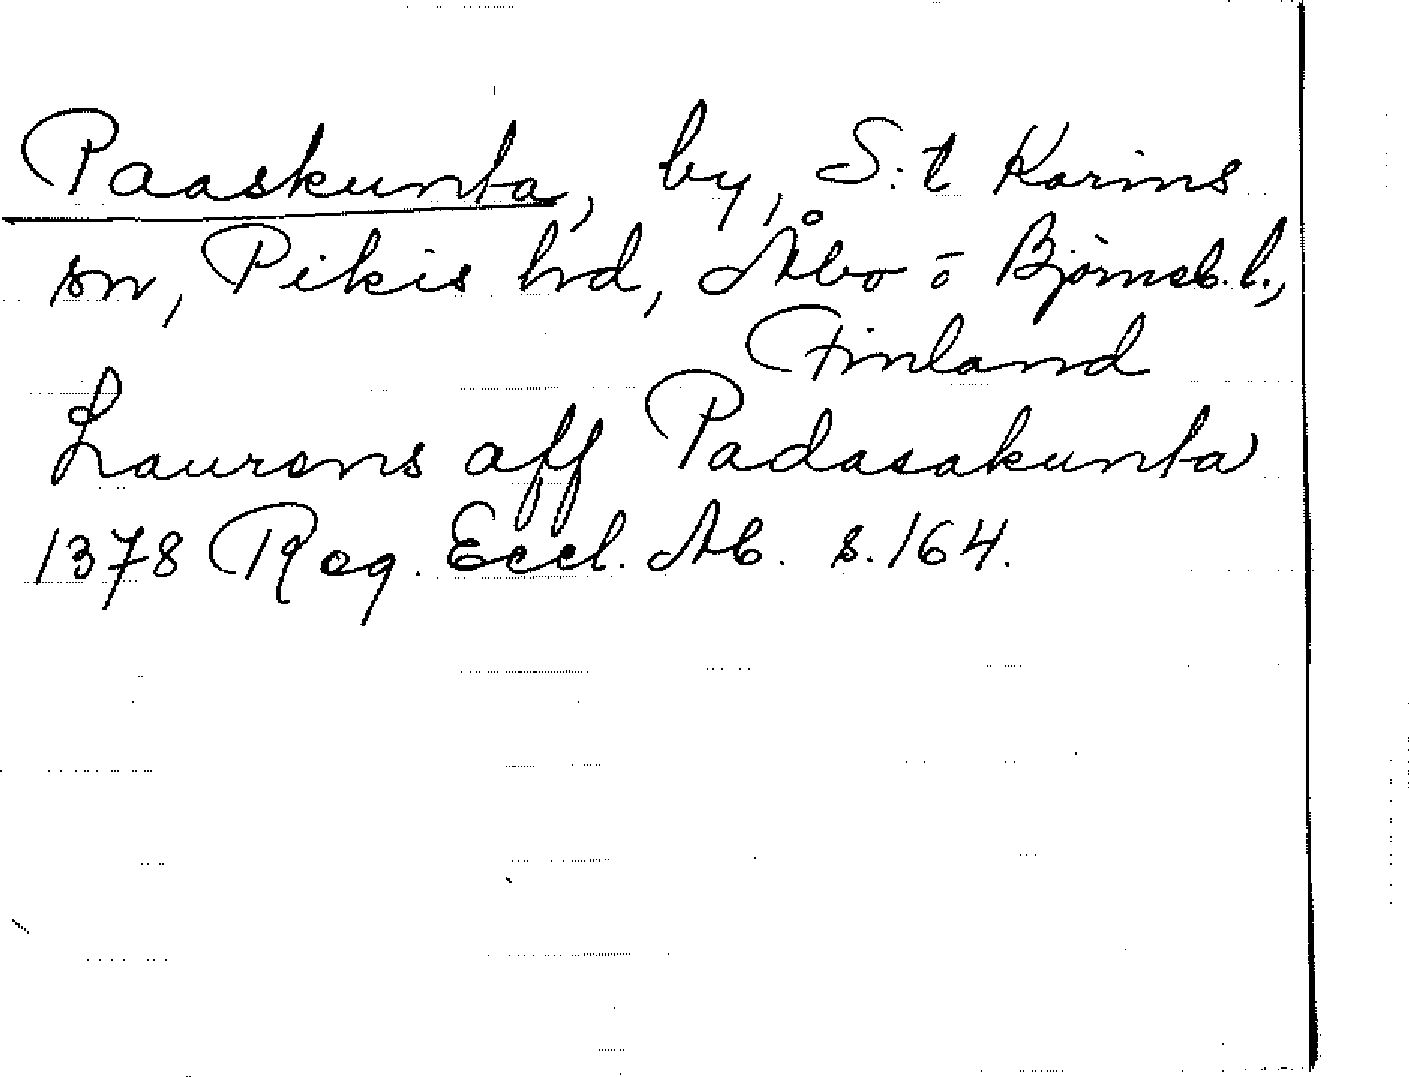 Paaskunta, by, S:t Karins
sn, Pikis hd, Åbo o Björneb. l.,
Finland
Laurens aff Padasakunta
1378 Reg. Eccl. Ab. s. 164.